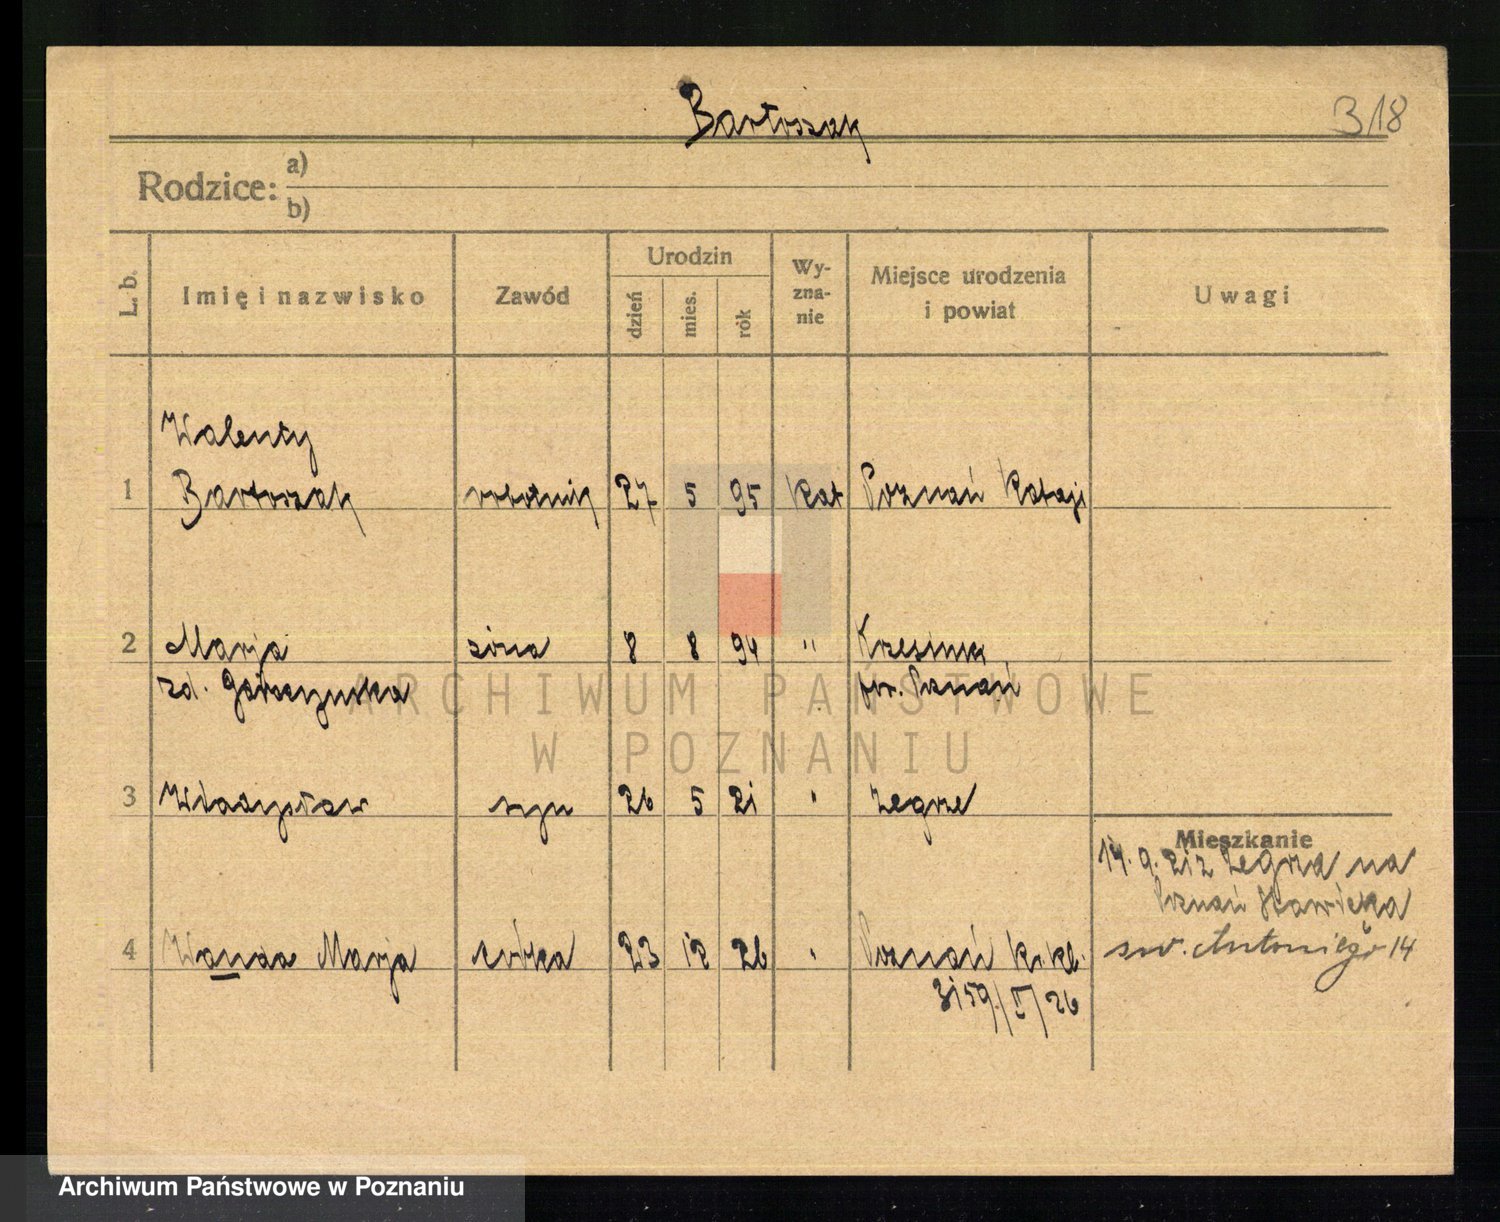 Bartoszak
318
Rodzice: a)
b)
L. b.
Imię i nazwisko
Zawód
Urodzin
dzień
mies.
rók
Wy-
zna-
nie
Miejsce urodzenia
i powiat
Uwagi
Walenty
1 Bartoszak robotnik 27 5 95 kat Poznań Rataje
2 Marja żona 8 8 94 " Krzesinki
zd. pow. Poznań
3 Władysław syn 26 5 21 " Żegrze
Mieszkanie
14. 9. 21 z Żegrza na
Poznań
św. Antoniego 14
4 Wanda Marja córka 23 12 26 " Poznań
3159/V/26
ARCHIWUM PAŃSTWOWE
W POZNANIU
Archiwum Państwowe w Poznaniu